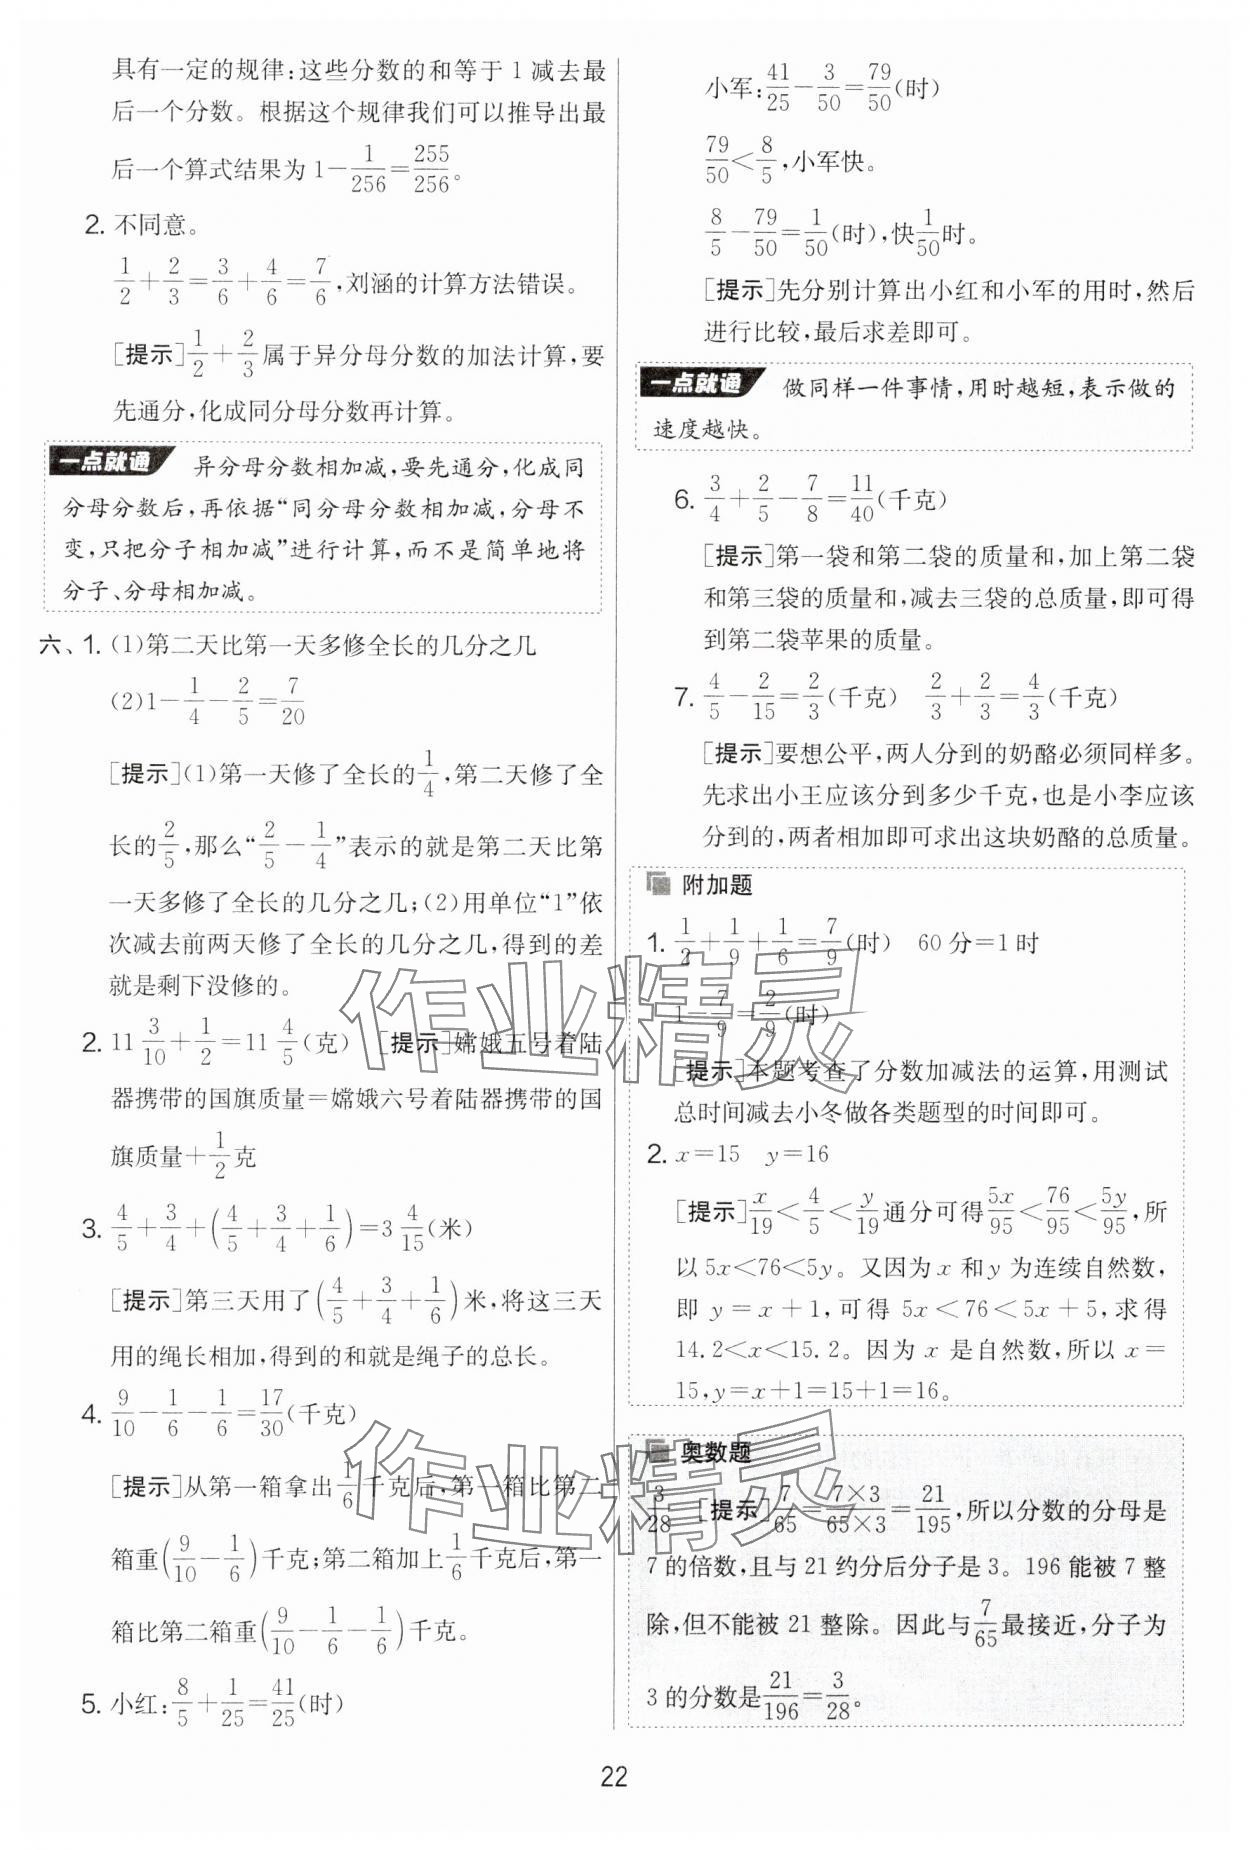 具有一定的规律:这些分数的和等于 1 减去最
后一个分数。根据这个规律我们可以推导出最
后一个算式结果为 1−1/256=255/256。
2. 不同意。
1/2+2/3=3/6+4/6=7/6,刘涵的计算方法错误。
[提示]1/2+2/3属于异分母分数的加法计算,要
先通分,化成同分母分数再计算。
一点就通 异分母分数相加减,要先通分,化成同
分母分数后,再依据“同分母分数相加减,分母不
变,只把分子相加减”进行计算,而不是简单地将
分子、分母相加减。
六、1. (1)第二天比第一天多修全长的几分之几
(2)1−1/4−2/5=7/20
[提示](1)第一天修了全长的1/4,第二天修了全
长的2/5,那么“2/5−1/4”表示的就是第二天比第
一天多修了全长的几分之几;(2)用单位“1”依
次减去前两天修了全长的几分之几,得到的差
就是剩下没修的。
2. 11 3/10+1/2=11 4/5(克) [提示]嫦娥五号着陆
器携带的国旗质量=嫦娥六号着陆器携带的国
旗质量+1/2克
3. 4/5+3/4+(4/5+3/4+1/6)=3 4/15(米)
[提示]第三天用了(4/5+3/4+1/6)米,将这三天
用的绳长相加,得到的和就是绳子的总长。
4. 9/10−1/6−1/6=17/30(千克)
[提示]从第一箱拿出1/6千克后,第一箱比第二
箱重(9/10−1/6)千克;第二箱加上1/6千克后,第一
箱比第二箱重(9/10−1/6−1/6)千克。
5. 小红:8/5+1/25=41/25(时)
小军:41/25−3/50=79/50(时)
79/50<8/5,小军快。
8/5−79/50=1/50(时),快1/50时。
[提示]先分别计算出小红和小军的用时,然后
进行比较,最后求差即可。
一点就通 做同样一件事情,用时越短,表示做的
速度越快。
6. 3/4+2/5−7/8=11/40(千克)
[提示]第一袋和第二袋的质量和,加上第二袋
和第三袋的质量和,减去三袋的总质量,即可得
到第二袋苹果的质量。
7. 4/5−2/15=2/3(千克) 2/3+2/3=4/3(千克)
[提示]要想公平,两人分到的奶酪必须同样多。
先求出小王应该分到多少千克,也是小李应该
分到的,两者相加即可求出这块奶酪的总质量。
附加题
1. 1/2+1/9+1/6=7/9(时) 60分=1时
1−7/9=2/9(时)
[提示]本题考查了分数加减法的运算,用测试
总时间减去小冬做各类题型的时间即可。
2. x=15 y=16
[提示]x/19<4/5<y/19通分可得5x/95<76/95<5y/95,所
以 5x<76<5y。又因为 x 和 y 为连续自然数,
即 y=x+1,可得 5x<76<5x+5,求得
14.2<x<15.2。因为 x 是自然数,所以 x=
15,y=x+1=15+1=16。
奥数题
3/28 [提示]7/65=7×3/65×3=21/195,所以分数的分母是
7 的倍数,且与 21 约分后分子是 3。196 能被 7 整
除,但不能被 21 整除。因此与7/65最接近,分子为
3 的分数是21/196=3/28。
22
作业精灵
作业精灵